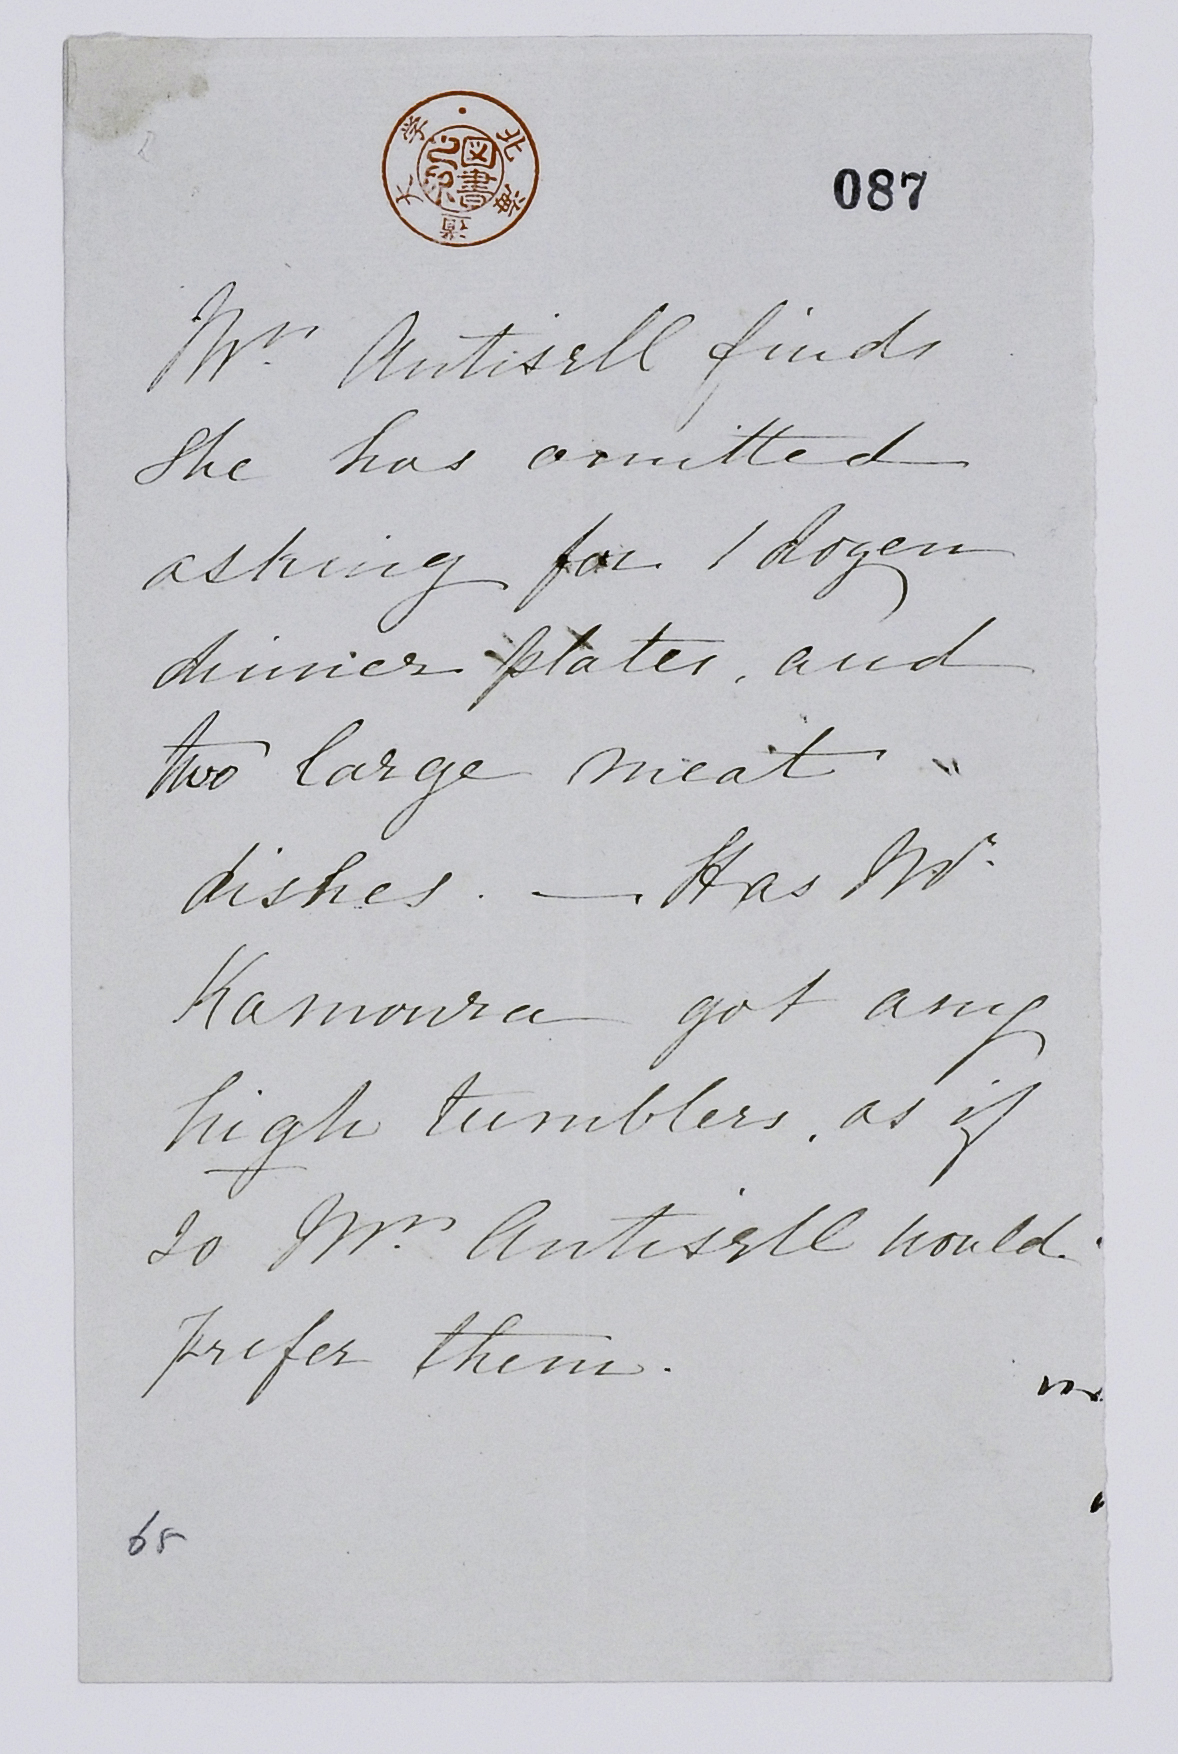 北海道大学
図書
087
Mrs. Antisell finds
She has omitted
asking for 1 dozen
dinner plates, and
two large meat
dishes. — Has Mr.
Kamoura got any
high tumblers, as if
so Mrs. Antisell would
prefer them.
65